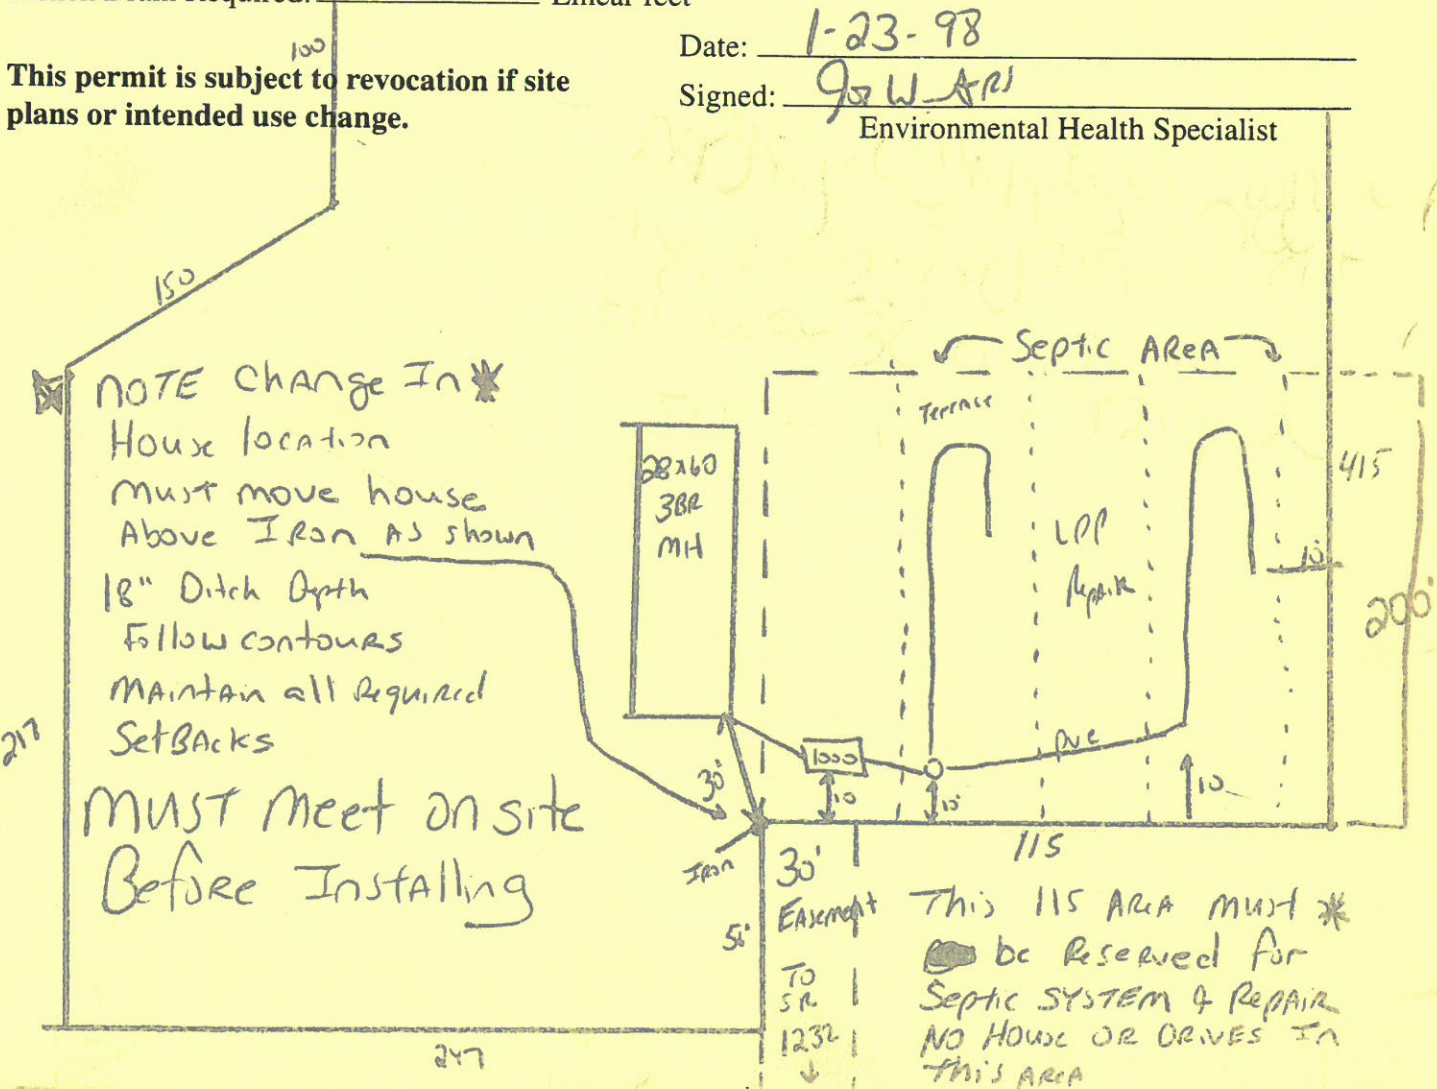 Linear feet
100
Date: 1-23-98
This permit is subject to revocation if site
plans or intended use change.
Signed:
Environmental Health Specialist
150
NOTE Change In
House location
Must move house
Above Iron As shown
18" Ditch Depth
Follow contours
Maintain all Required
SetBAcks
MUST Meet on site
Before Installing
217
247
Septic AReA
Terrace
28x60
3BR
MH
LPP
Repair
415
10'
200'
pvc
1000
30'
10
10'
10
Iron
115
30'
Easement
To
SR
1232
This 115 AReA must
be Reserved for
Septic SYSTEM & RepAiR
NO House OR DRIVES In
This AReA